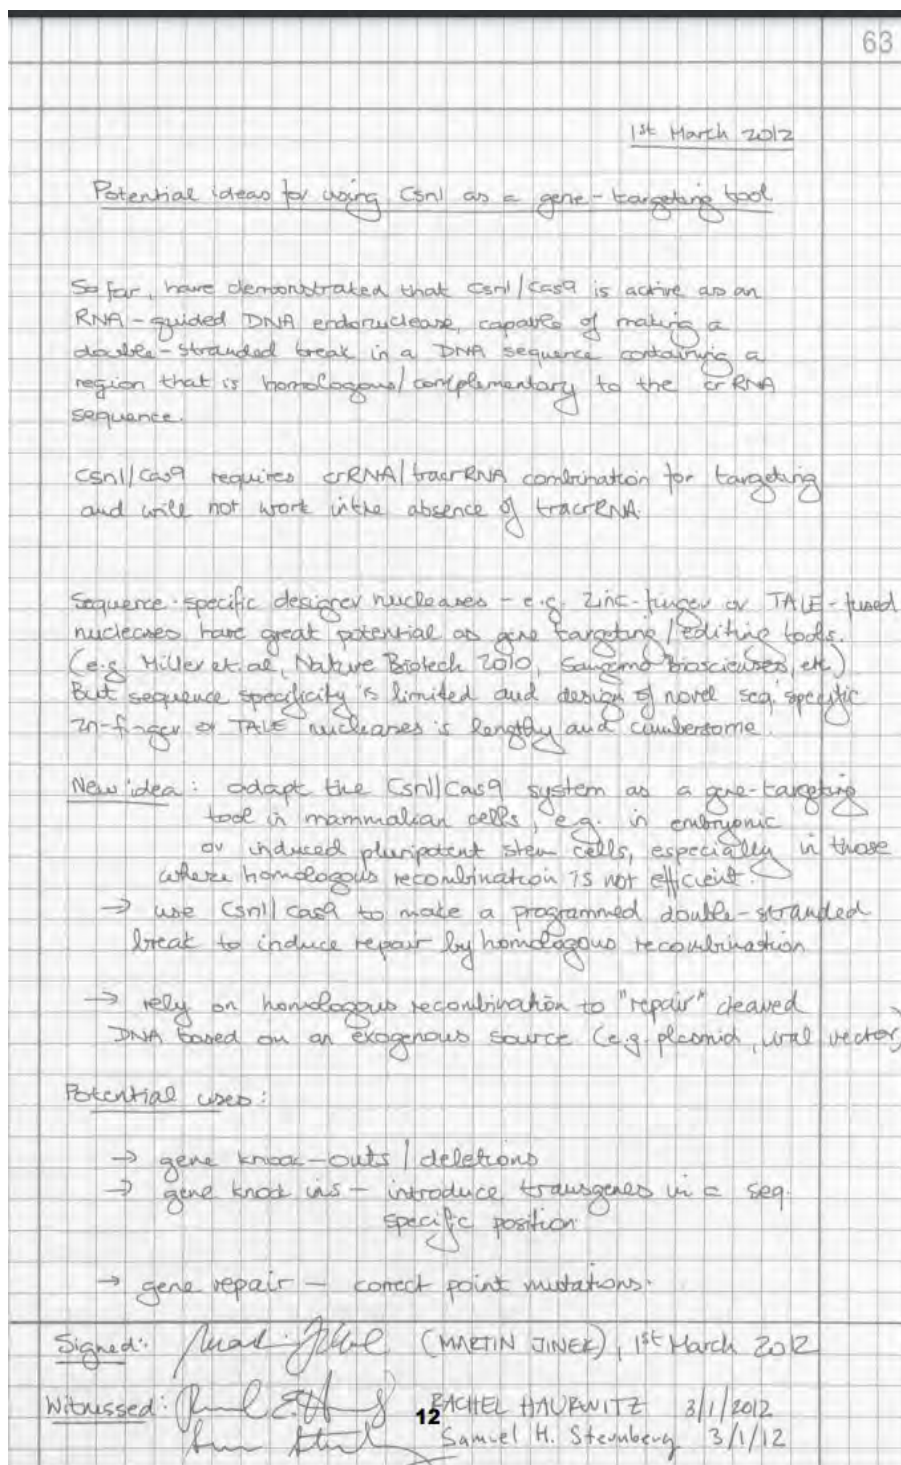 63
1st March 2012
Potential ideas for using Csn1 as a gene-targeting tool
So far, have demonstrated that Csn1/Cas9 is active as an
RNA-guided DNA endonuclease, capable of making a
double-stranded break in a DNA sequence containing a
region that is homologous/complementary to the crRNA
sequence.
Csn1/Cas9 requires crRNA/tracrRNA combination for targeting
and will not work in the absence of tracrRNA.
Sequence-specific designer nucleases - e.g. Zinc-finger or TALE-fused
nucleases have great potential as gene targeting/editing tools.
(e.g. Miller et. al, Nature Biotech 2010, Sangamo Biosciences, etc)
But sequence specificity is limited and design of novel seq. specific
Zn-finger or TALE nucleases is lengthy and cumbersome.
New idea: adapt the Csn1/Cas9 system as a gene-targeting
tool in mammalian cells, e.g. in embryonic
or induced pluripotent stem cells, especially in those
where homologous recombination is not efficient.
→ use Csn1/Cas9 to make a programmed double-stranded
break to induce repair by homologous recombination
→ rely on homologous recombination to "repair" cleaved
DNA based on an exogenous source (e.g. plasmid, viral vector)
Potential uses:
→ gene knock-outs/deletions
→ gene knock ins - introduce transgenes in a seq.
specific position
→ gene repair - correct point mutations.
Signed: (MARTIN JINEK), 1st March 2012
Witnessed: RACHEL HAURWITZ 3/1/2012
12
Samuel H. Sternberg 3/1/12